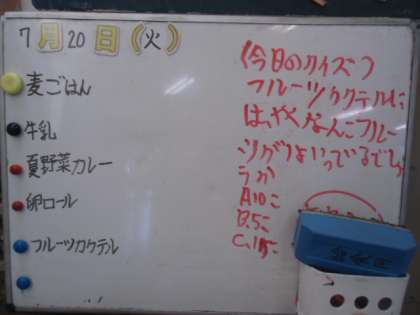 7月20日(火)
麦ごはん
牛乳
夏野菜カレー
卵ロール
フルーツカクテル
(今日のクイズ)
フルーツカクテルに
は、
なんこフルー
ツがはいってるでしょ
うか
A10こ
B.5こ
C.15こ